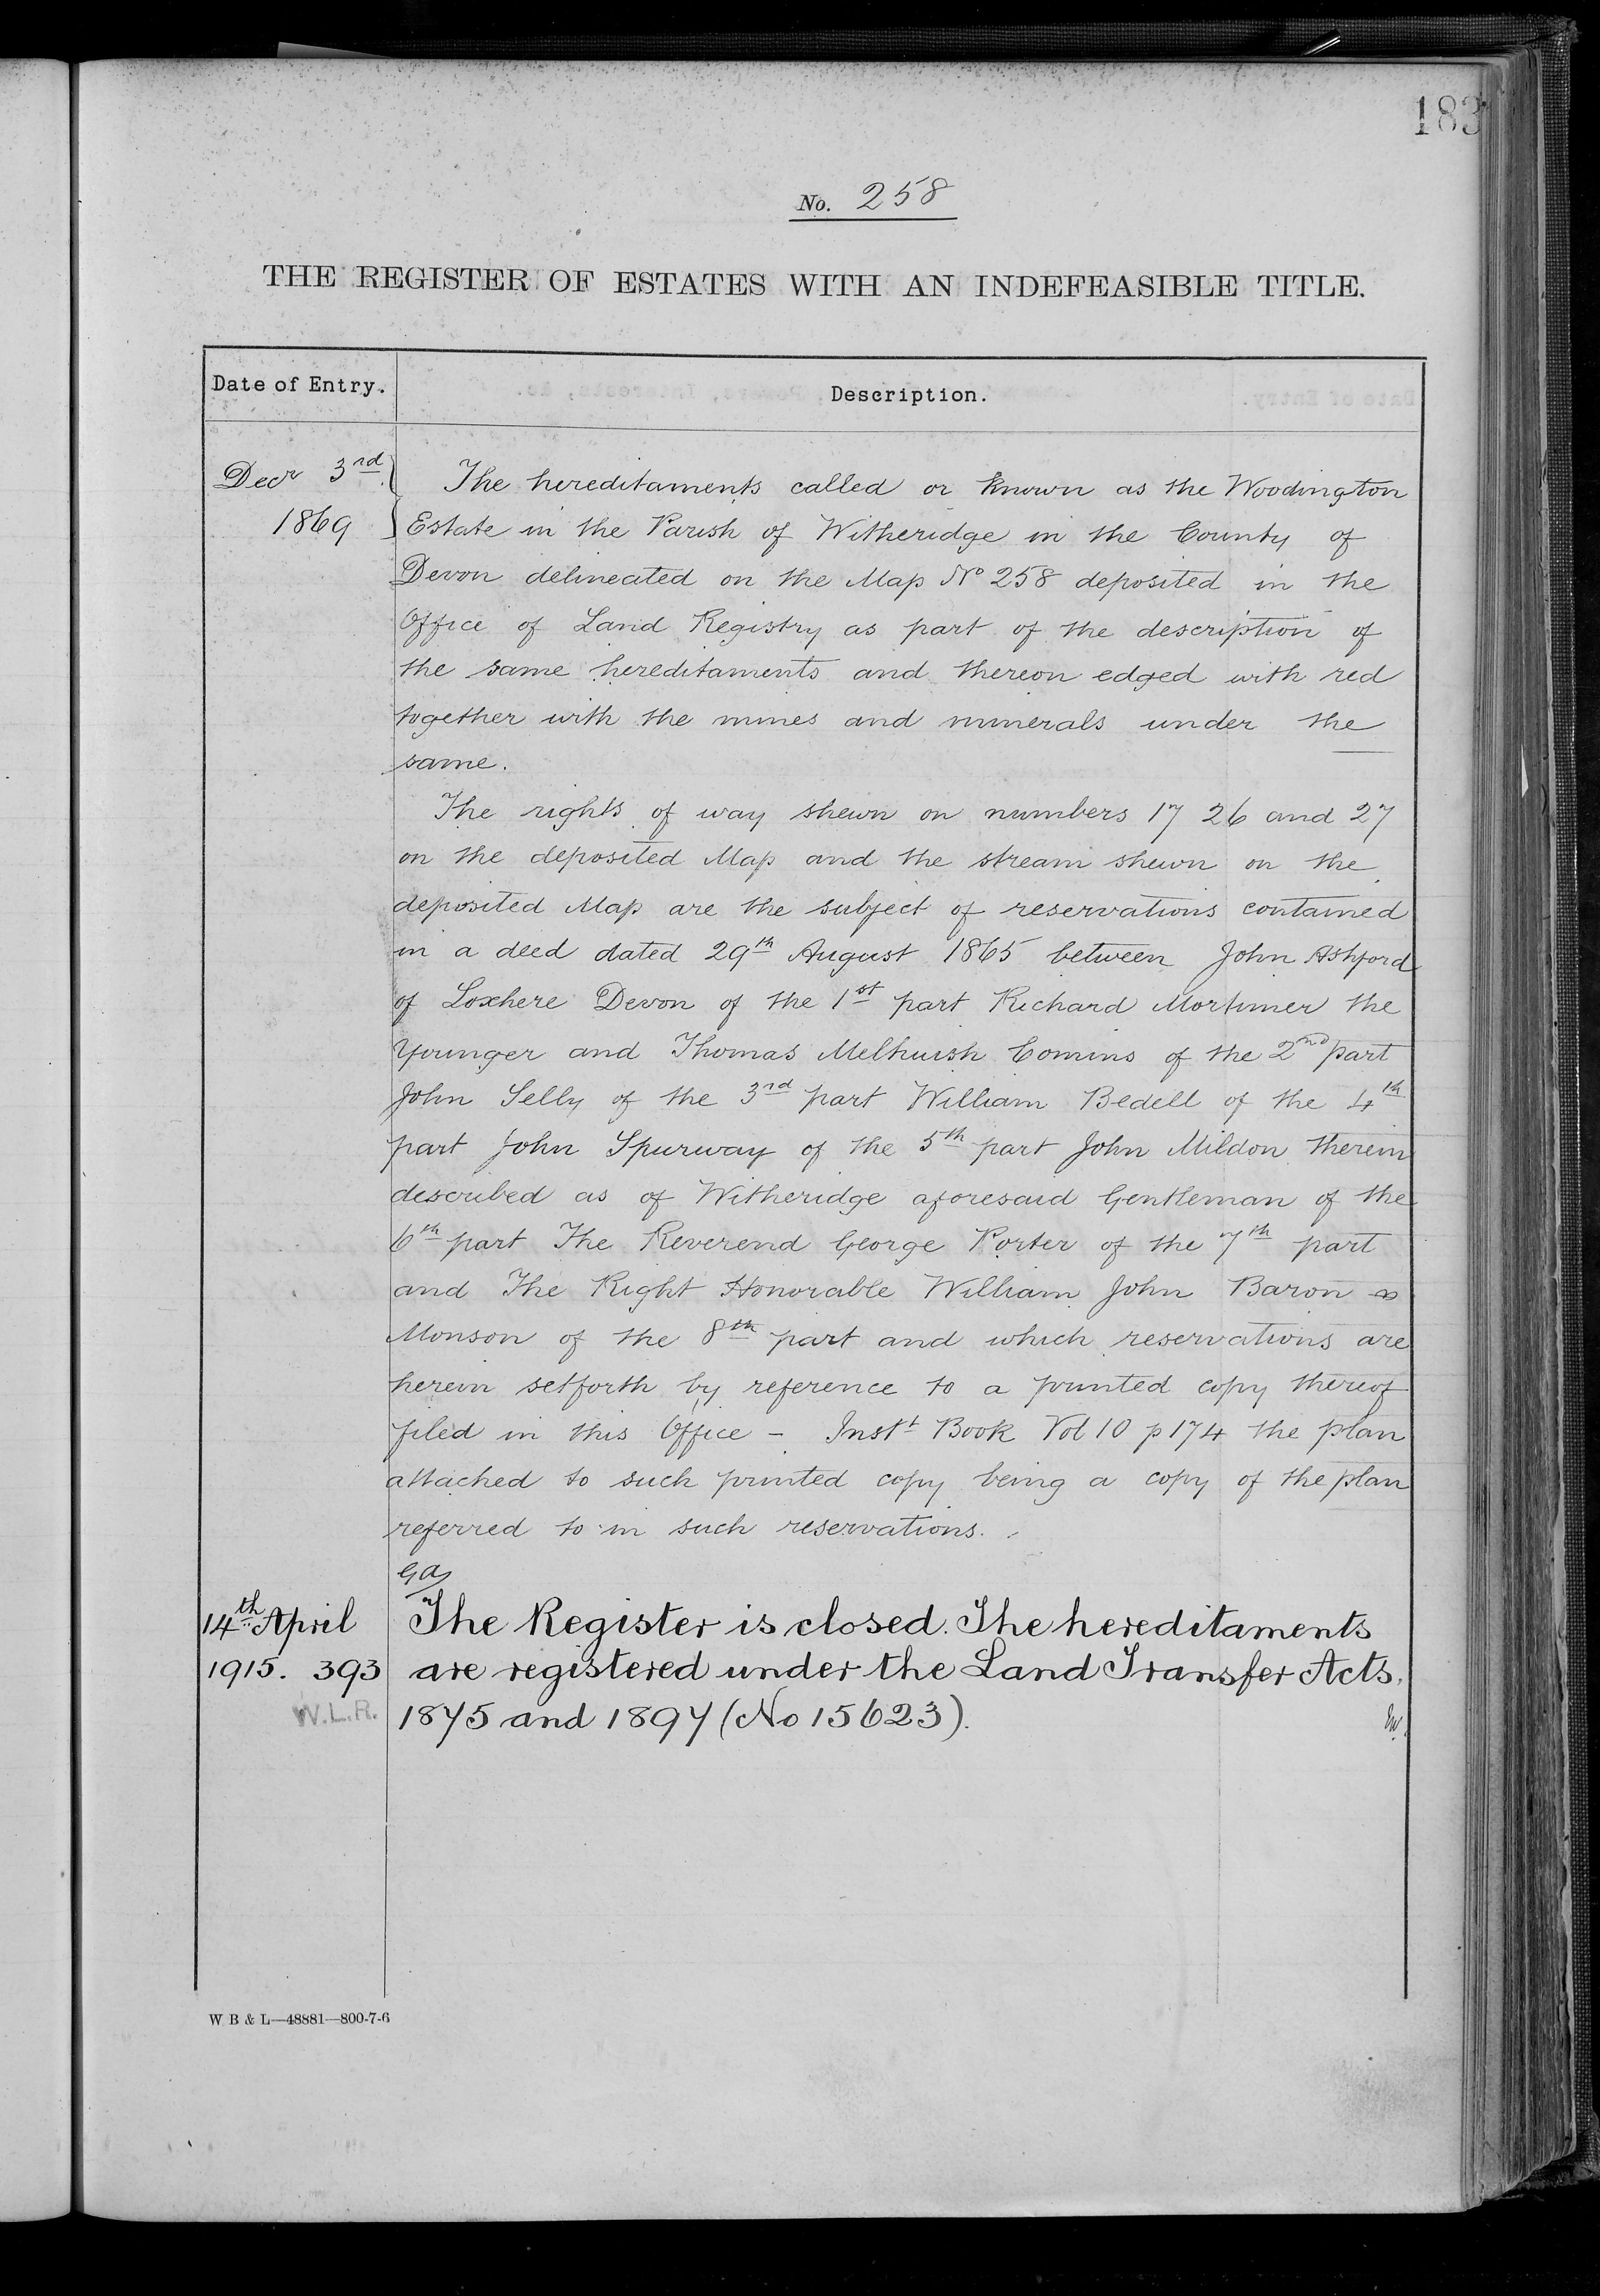 183
No. 258
THE REGISTER OF ESTATES WITH AN INDEFEASIBLE TITLE.
Date of Entry.
Description.
Decr 3rd
1869
The hereditaments called or known as the Woodington
Estate in the Parish of Witheridge in the County of
Devon delineated on the Map No 258 deposited in the
Office of Land Registry as part of the description of
the same hereditaments and thereon edged with red
together with the mines and minerals under the
same.
The rights of way shewn on numbers 17 26 and 27
on the deposited Map and the stream shewn on the
deposited Map are the subject of reservations contained
in a deed dated 29th August 1865 between John Ashford
of Loxhere Devon of the 1st part Richard Mortimer the
Younger and Thomas Melhuish Comins of the 2nd part
John Selly of the 3rd part William Bedell of the 4th
part John Spurway of the 5th part John Mildon therein
described as of Witheridge aforesaid Gentleman of the
6th part The Reverend George Porter of the 7th part
and The Right Honorable William John Baron
Monson of the 8th part and which reservations are
herein setforth by reference to a printed copy thereof
filed in this Office - Instt Book Vol 10 p 174 the plan
attached to such printed copy being a copy of the plan
referred to in such reservations.
14th April
1915. 393
W.L.R.
The Register is closed. The hereditaments
are registered under the Land Transfer Acts,
1875 and 1897 (No 15623).
W B & L—48881—800-7-6